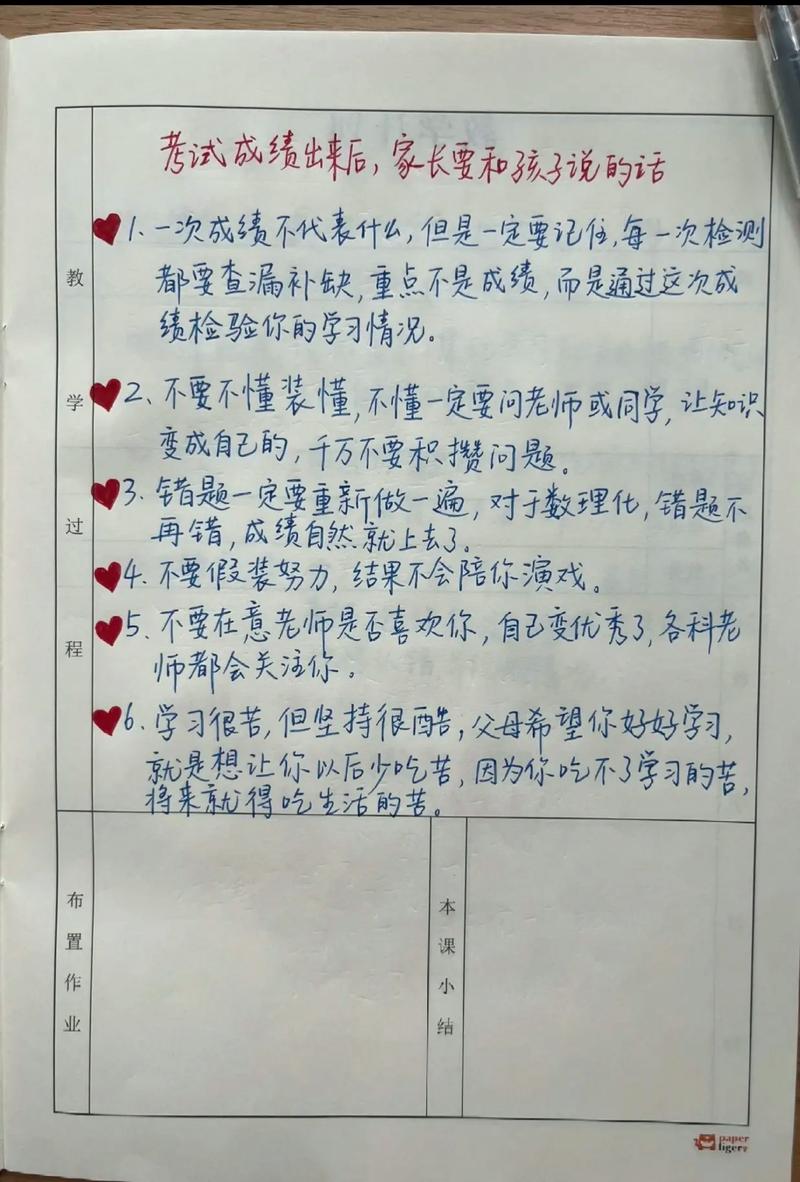 考试成绩出来后，家长要和孩子说的话
1、一次成绩不代表什么，但是一定要记住，每一次检测
都要查漏补缺，重点不是成绩，而是通过这次成
绩检验你的学习情况。
2、不要不懂装懂，不懂一定要问老师或同学，让知识
变成自己的，千万不要积攒问题。
3、错题一定要重新做一遍，对于数理化，错题不
再错，成绩自然就上去了。
4、不要假装努力，结果不会陪你演戏。
5、不要在意老师是否喜欢你，自己变优秀了，各科老
师都会关注你。
6、学习很苦，但坚持很酷，父母希望你好好学习，
就是想让你以后少吃苦，因为你吃不了学习的苦，
将来就得吃生活的苦。
教学过程
布置作业
本课小结
paper
tiger